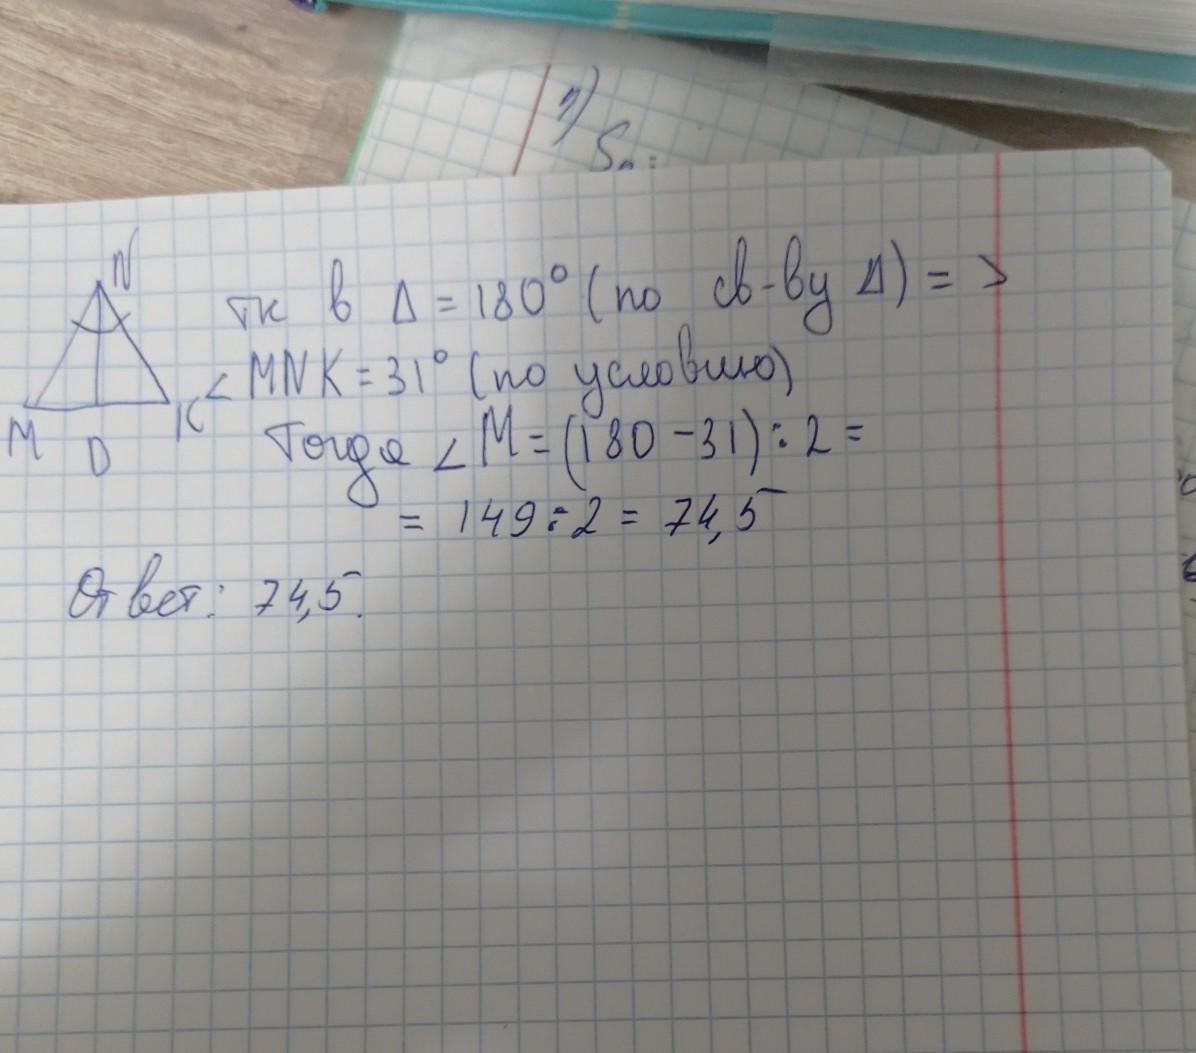 1)
Sn =
N
M D K
тк в Δ = 180° (по св-ву Δ) = >
∠ MNK = 31° (по условию)
Тогда ∠ M = (180 - 31) : 2 =
= 149 : 2 = 74,5
Ответ: 74,5.